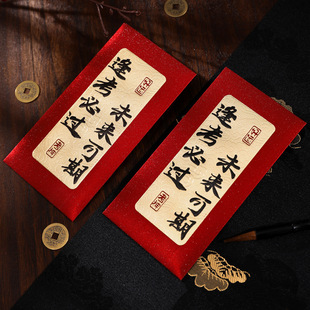 逢考必过
未来可期
逢考必过
未来可期